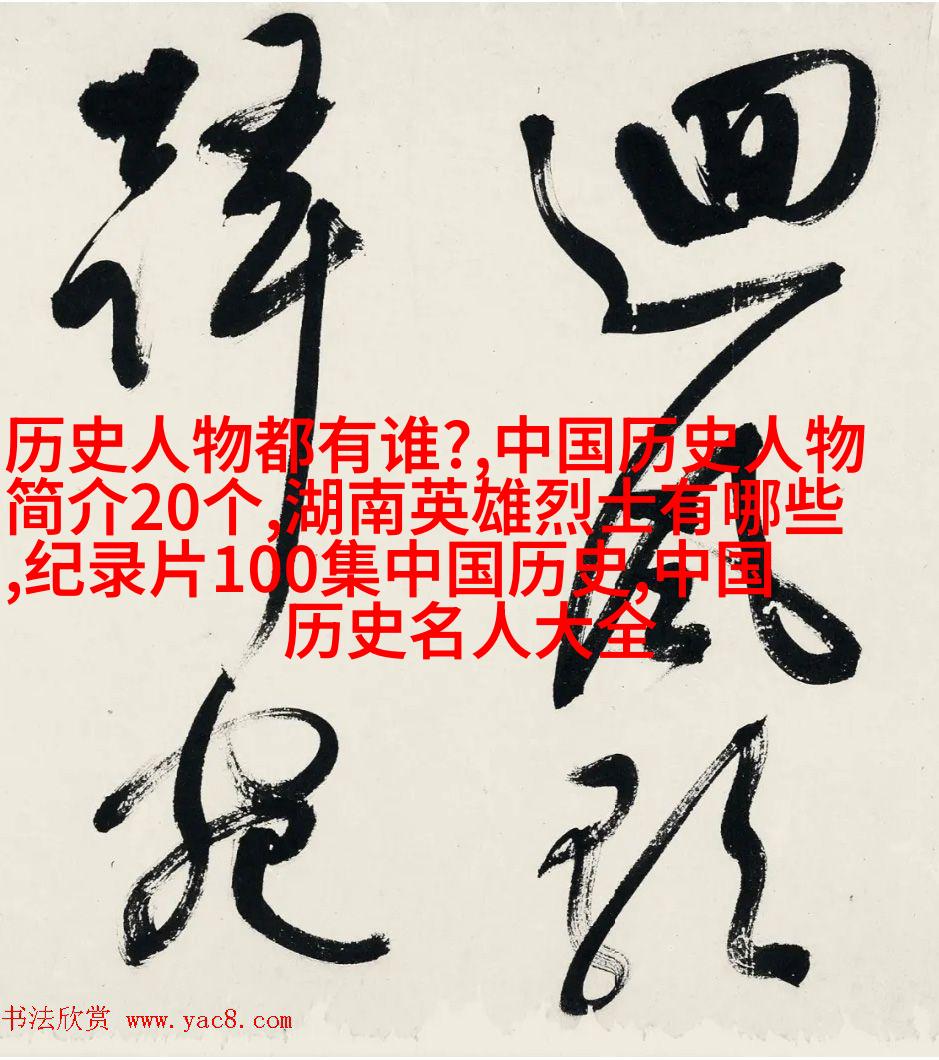 迴風
历史人物都有谁?,中国历史人物
简介20个,湖南英雄烈士有哪些
,纪录片100集中国历史,中国
历史名人大全
书法欣赏 www.yac8.com